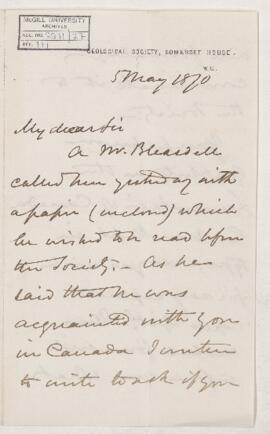 McGILL UNIVERSITY
ARCHIVES
ACC. NO.
REF.
GEOLOGICAL SOCIETY, SOMERSET HOUSE.
W.C.
5 May 1870
My dear Sir
A Mr. Bleasdell
called here yesterday with
a paper (enclosed) which
he wished to be read before
the Society. — As he
said that he was
acquainted with you
in Canada I
to write to ask if you